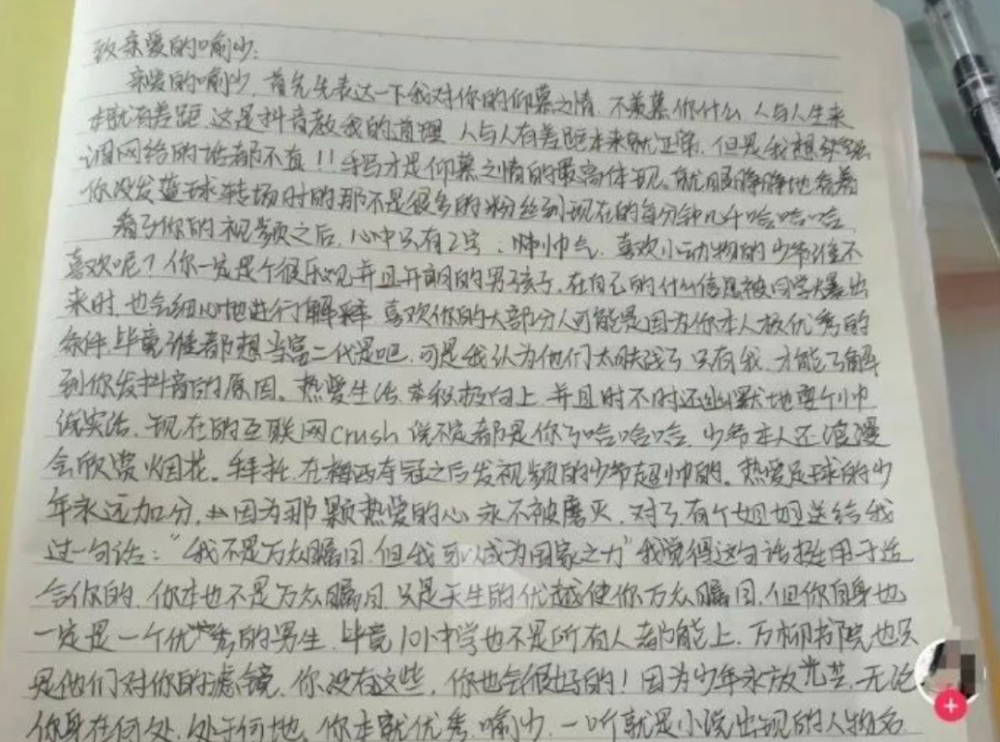 致亲爱的喻少:
亲爱的喻少,首先先表达一下我对你的仰慕之情,不羡慕你什么,人与人生来
本就有差距,这是抖音教我的道理,人与人有差距本来就正常,但是我想
调网络的话都不直!!手写才是仰慕之情的最高体现。就静静地看着
你没发篮球转场时的那不是很多的粉丝到现在的每分钟几千哈哈哈
看了你的视频之后,心中只有2字:帅帅气,喜欢小动物的少爷谁不
喜欢呢?你一定是个很乐观,并且开朗的男孩子,在自己的什么信息被同学爆出
来时,也会细心地进行解释,喜欢你的大部分人可能是因为你本人极优秀的
条件,毕竟谁都想当富二代是吧,可是我认为他们太肤浅了,只有我,才能了解
到你发抖音的原因。热爱生活,积极向上,并且时不时还幽默地耍个小巾
诚实活,现在的互联网crush说不定都是你了哈哈哈哈,少爷本人还浪漫
会欣赏烟花。拜托,在梅西夺冠之后发视频的少爷超帅的。热爱足球的少
年永远加分,因为那颗热爱的心永不被磨灭,对了,有个姐姐送给我
过一句话:“我不是万众瞩目,但我可以成为国家之力”我觉得这句话挺用于送
给你的,你本也不是万众瞩目,只是天生的优越使你万众瞩目,但你自身也
一定是一个优秀的男生,毕竟101中学也不是所有人都能上,万柳书院也只
是他们对你的滤镜,你没有这些,你也会很好的!因为少年永放光芒,无论
你身在何处,处于何地,你本就优秀,喻少,一听就是小说出现的人物名